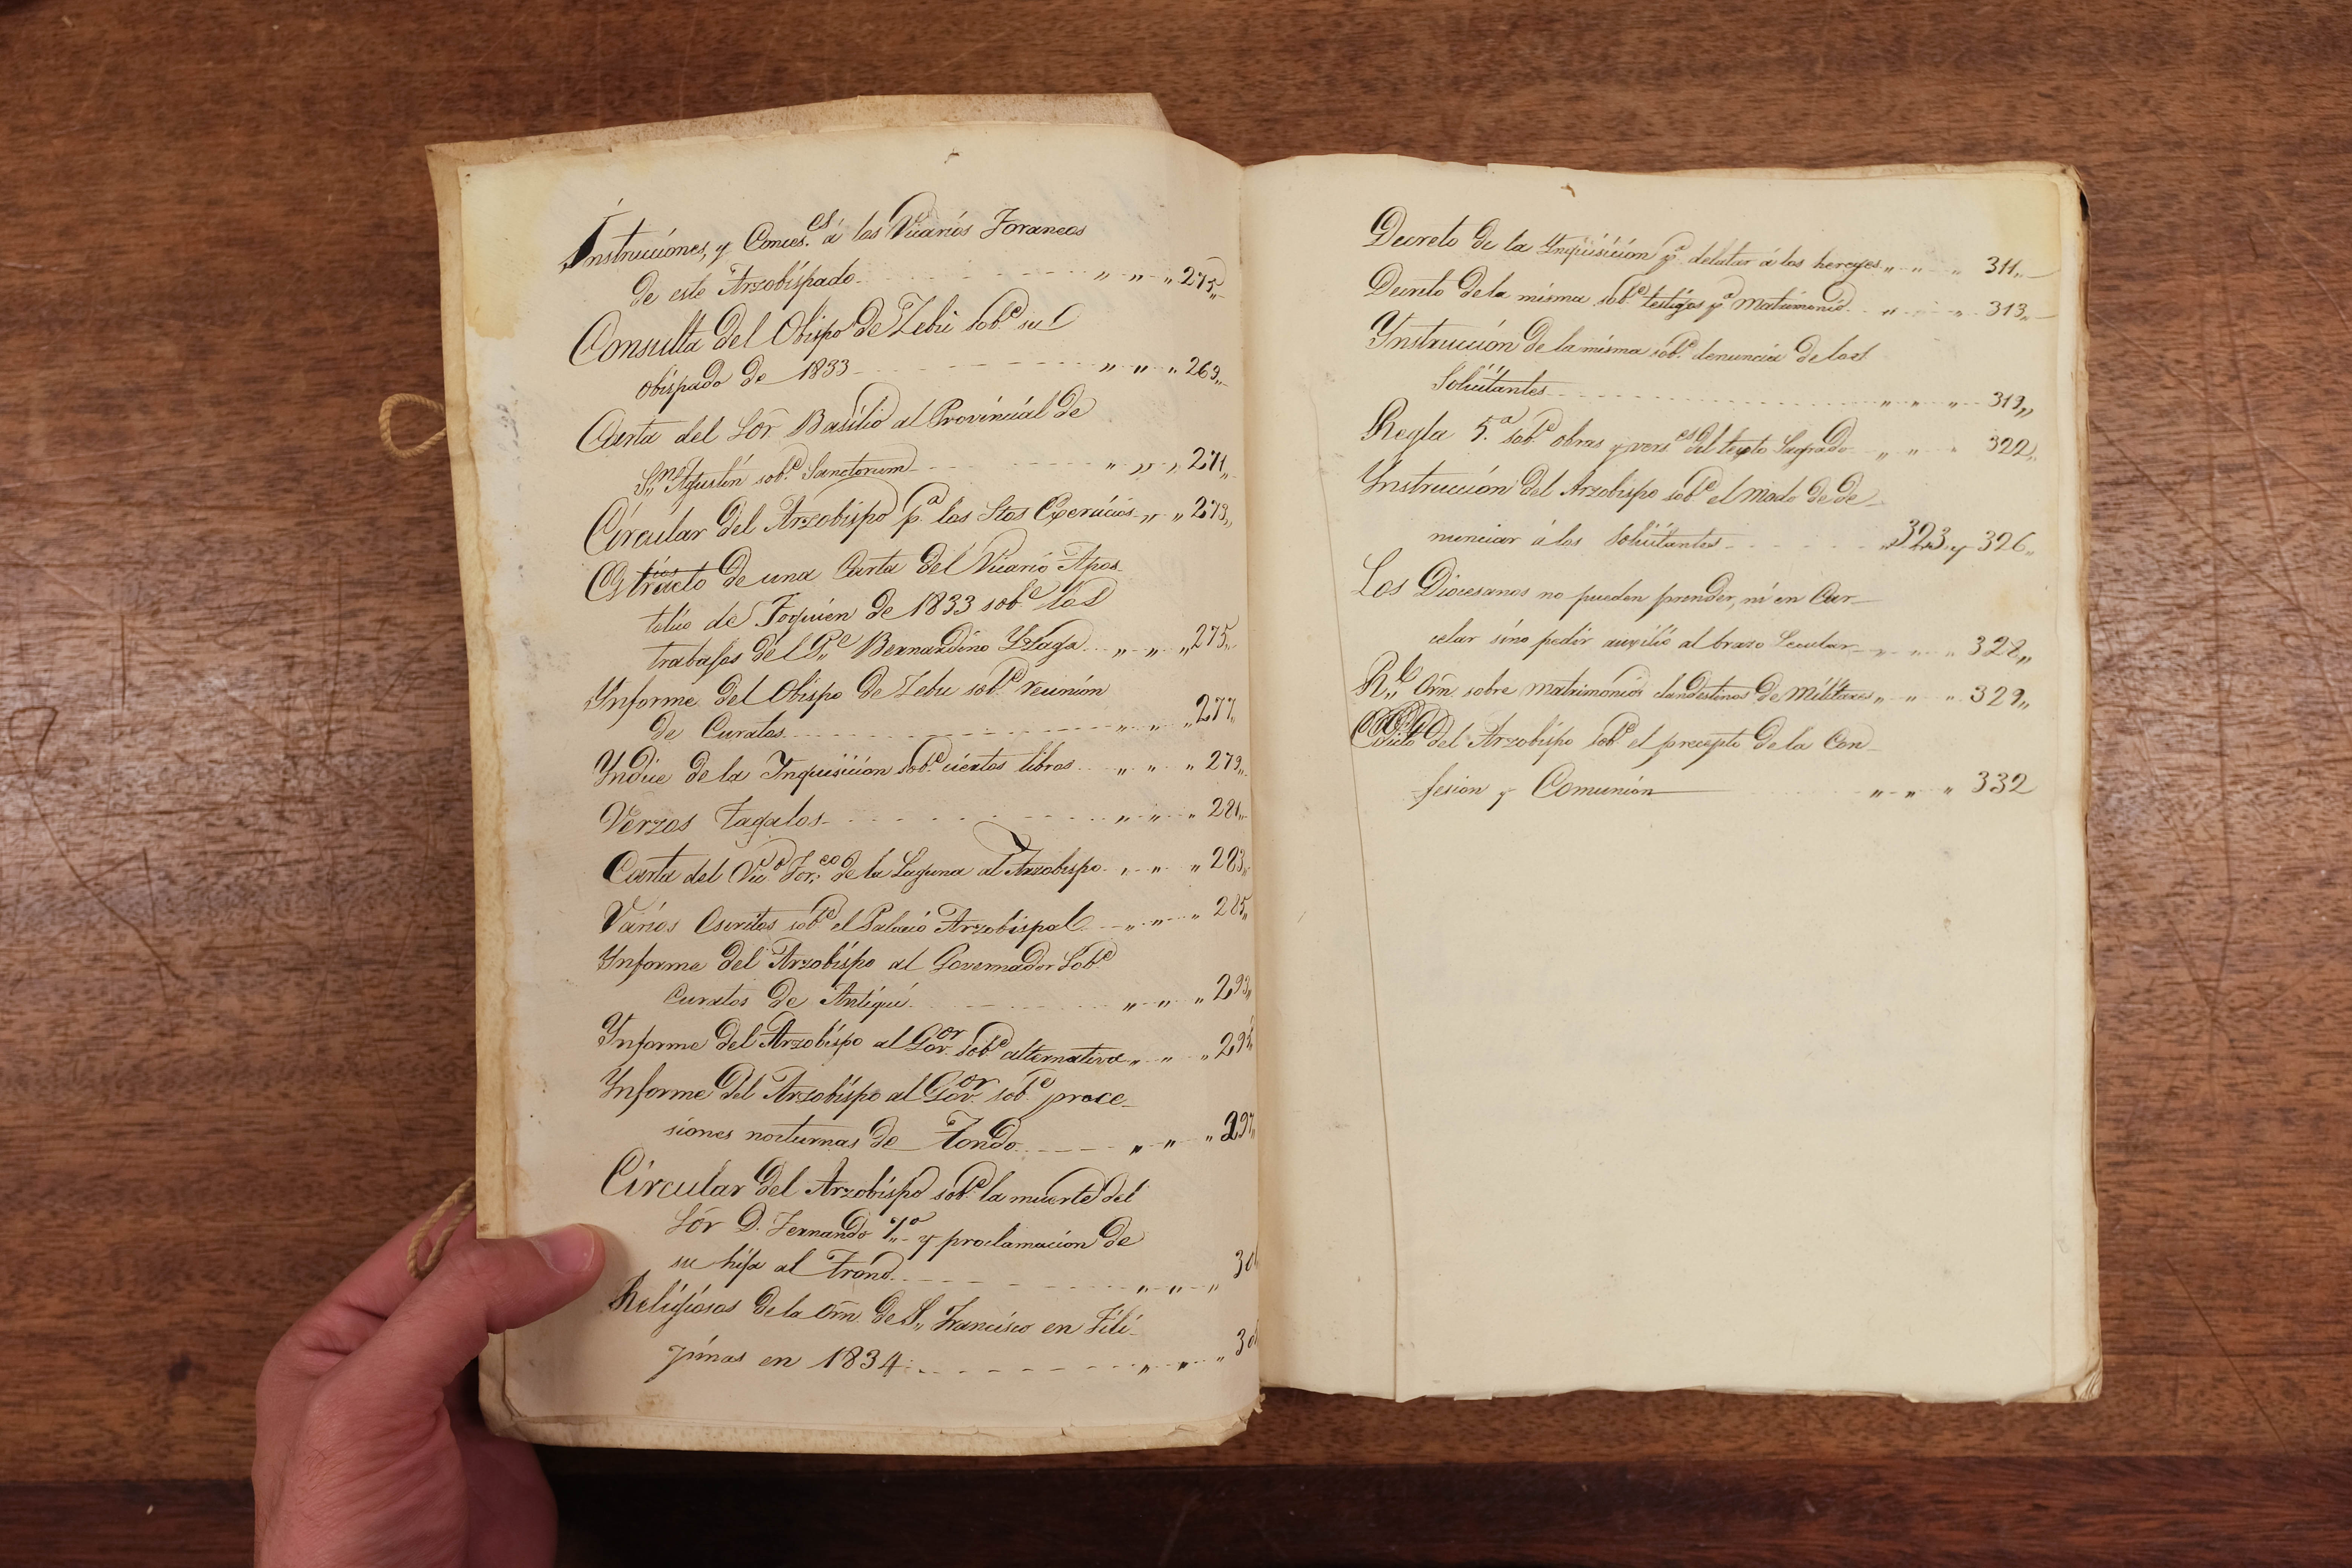 Instrucciones, y Conces.es á los Vicarios Foraneos
de este Arzobispado „ „ „ 275„
Consulta del Obispo de Zebú sob.e su
obispado de 1833 „ „ „ 269„
Carta del Sōr Basilio al Provincial de
S.n Agustin sob.e Sanctorum „ „ „ 271„
Circular del Arzobispo p.a los Stos Exercicios „ „ 273„
Estracto de una Carta del Vicario Apos-
tolico de Foquien de 1833 sob.e los
trabajos del P.e Bernardino Yzaga „ „ „ 275„
Ynforme del Obispo de Zebu sob.e reunion
de Curatos „ „ „ 277„
Yndice de la Inquisicion sob.e ciertos libros „ „ „ 279„
Verzos Tagalos „ „ „ 281„
Carta del Vic.o For.eo de la Laguna al Arzobispo „ „ „ 283„
Varios Escritos sob.e el Palacio Arzobispal „ „ „ 285„
Ynforme del Arzobispo al Governador Sob.e
curatos de Antique „ „ „ 293„
Ynforme del Arzobispo al Gov.or sob.e alternativa „ „ „ 295
Ynforme del Arzobispo al Gov.or sob.e proce-
siones nocturnas de Tondo „ „ „ 297„
Circular del Arzobispo sob.e la muerte del
Sōr D. Fernando 7.o y proclamacion de
su hija al Trono „ „ „ 30
Religiosos de la Orn de S.n Francisco en Fili-
pinas en 1834 „ „ „ 30
Decreto de la Inquisicion p.a delatar á los hereges „ „ „ 311„
Decreto de la misma sob.e testigos p.a Matrimonio „ „ 313„
Ynstruccion de la misma sob.e denuncia de los
Solicitantes „ „ „ 319„
Regla 5.a sob.e obras y vers.es del texto Sagrado „ „ „ 322„
Ynstruccion del Arzobispo sob.e el modo de de-
nunciar á los Solicitantes „ 323 y 326„
Los Diocesanos no pueden prender, ni en Car-
celar sino pedir auxilio al brazo Secular „ „ „ 328„
R.l Orn sobre matrimonios clandestinos de Militares „ „ „ 329„
Edicto del Arzobispo sob.e el precepto de la Con-
fesion y Comunión „ „ „ 332